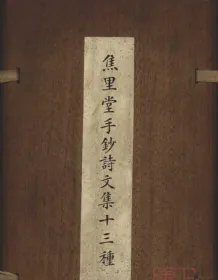 焦里堂手鈔詩文集十三種